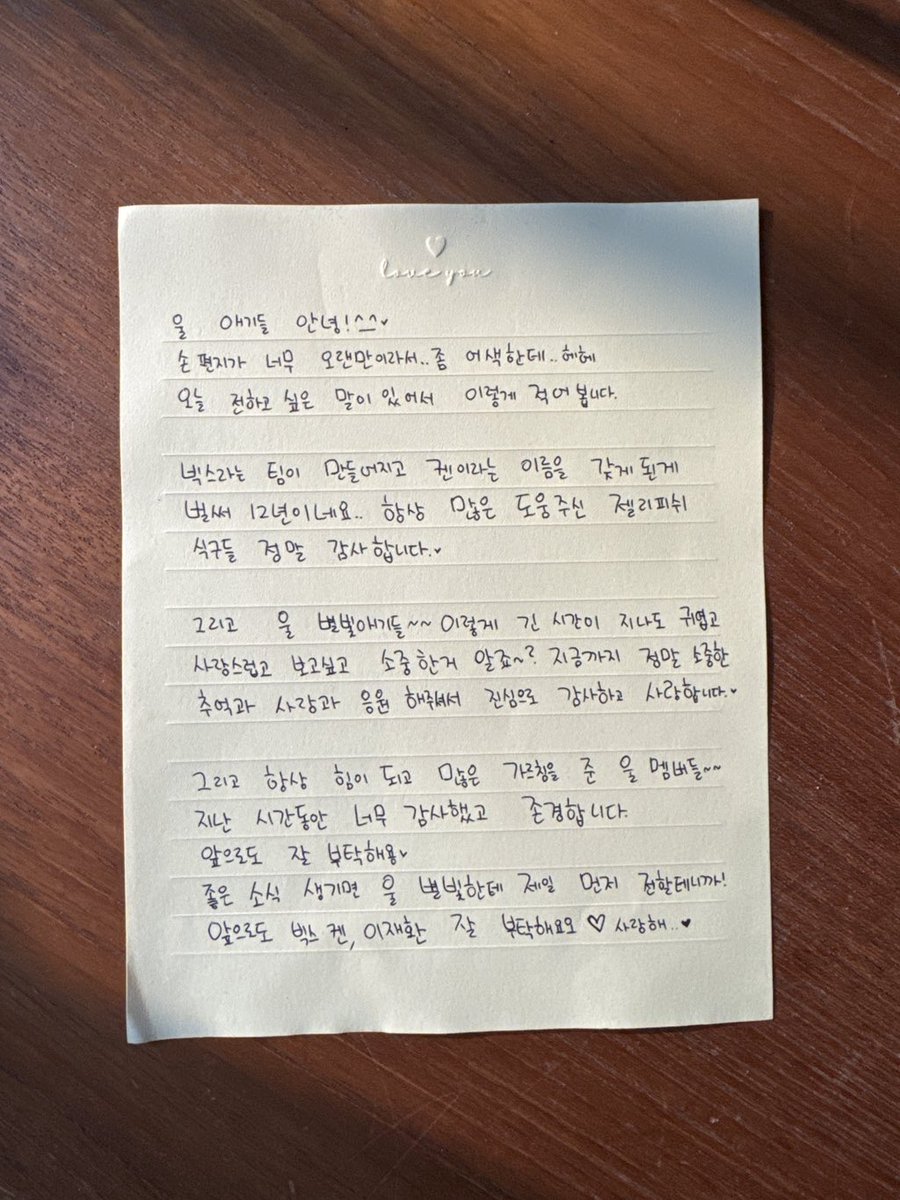 love you
울 애기들 안녕!^^♥
손 편지가 너무 오랜만이라서..좀 어색한데..헤헤
오늘 전하고 싶은 말이 있어서 이렇게 적어 봅니다.
빅스라는 팀이 만들어지고 켄이라는 이름을 갖게 된게
벌써 12년이네요.. 항상 많은 도움주신 젤리피쉬
식구들 정말 감사합니다.♥
그리고 울 별빛애기들~~ 이렇게 긴 시간이 지나도 귀엽고
사랑스럽고 보고싶고 소중한거 알죠~? 지금까지 정말 소중한
추억과 사랑과 응원 해주셔서 진심으로 감사하고 사랑합니다.♥
그리고 항상 힘이 되고 많은 가르침을 준 울 멤버들~~
지난 시간동안 너무 감사했고 존경합니다.
앞으로도 잘 부탁해용♥
좋은 소식 생기면 울 별빛한테 제일 먼저 전할테니까!
앞으로도 빅스 켄, 이재환 잘 부탁해요오 ♡ 사랑해..♥